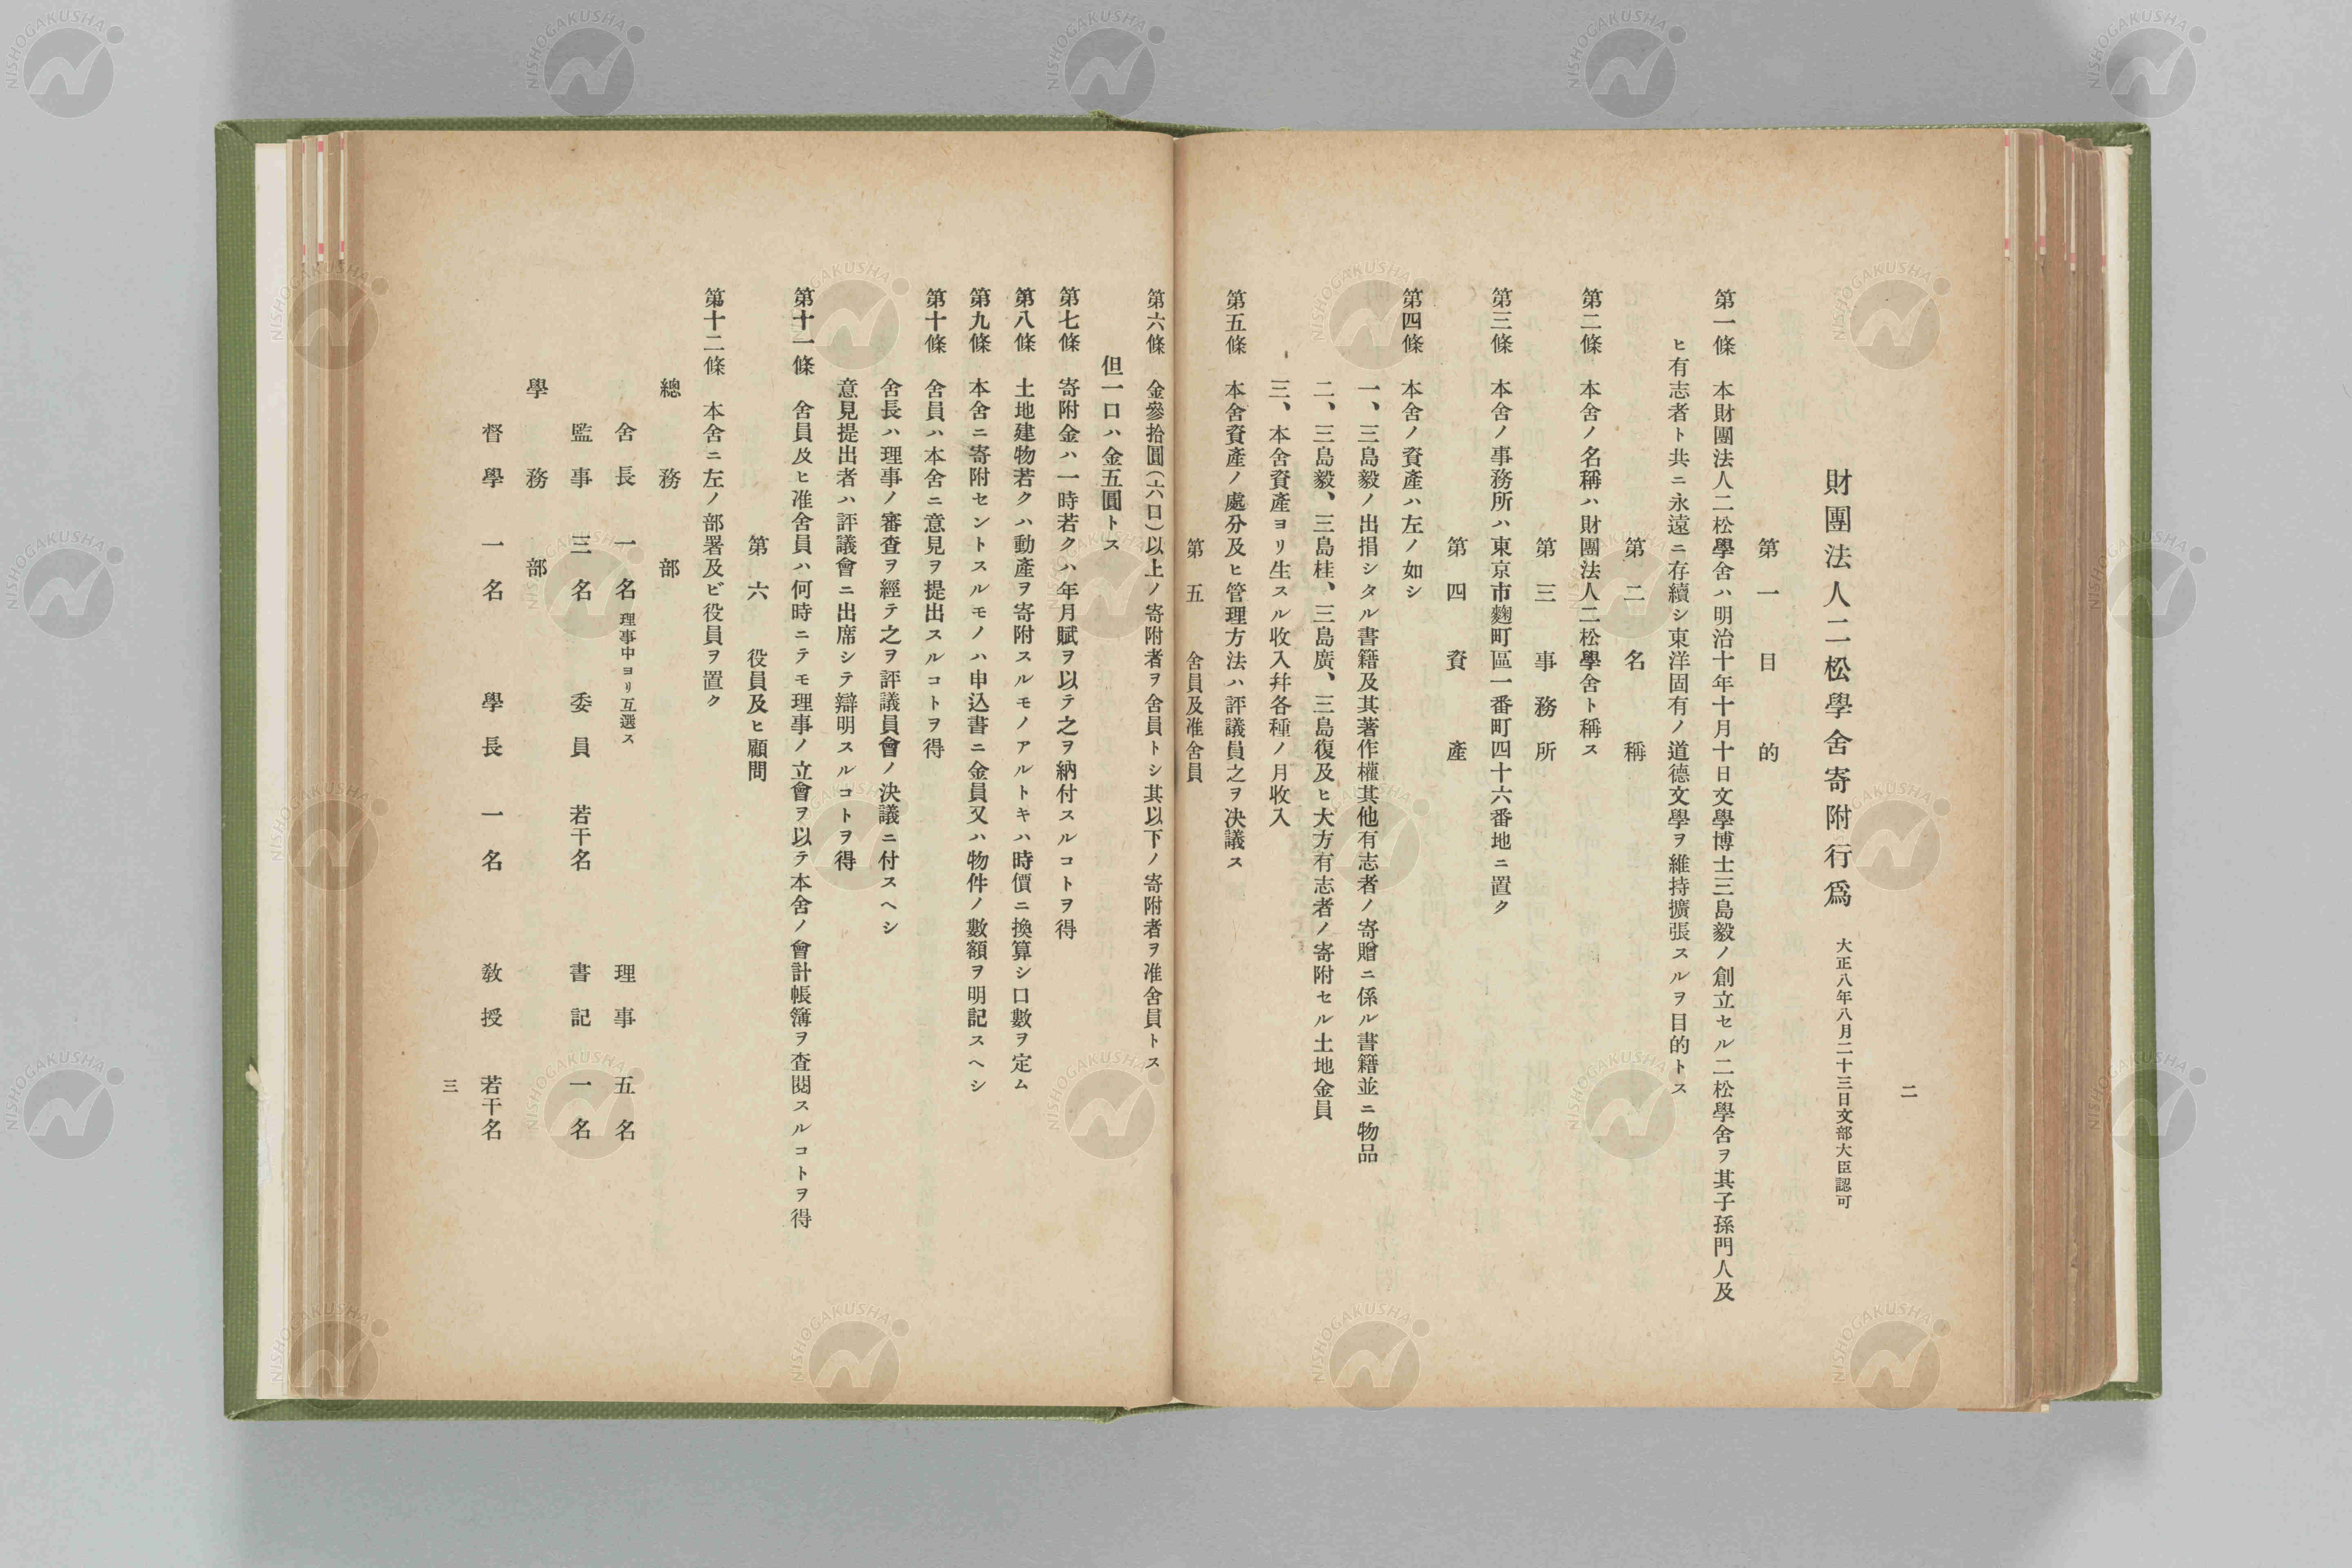 二
財團法人二松學舍寄附行爲 大正八年八月二十三日文部大臣認可
第一 目的
第一條 本財團法人二松學舍ハ明治十年十月十日文學博士三島毅ノ創立セル二松學舍ヲ其子孫門人及
ヒ有志者ト共ニ永遠ニ存續シ東洋固有ノ道德文學ヲ維持擴張スルヲ目的トス
第二 名稱
第二條 本舍ノ名稱ハ財團法人二松學舍ト稱ス
第三 事務所
第三條 本舍ノ事務所ハ東京市麴町區一番町四十六番地ニ置ク
第四 資產
第四條 本舍ノ資產ハ左ノ如シ
一、三島毅ノ出捐シタル書籍及其著作權其他有志者ノ寄贈ニ係ル書籍並ニ物品
二、三島毅、三島桂、三島廣、三島復及ヒ大方有志者ノ寄附セル土地金員
三、本舍資產ヨリ生スル收入幷各種ノ月收入
第五條 本舍資產ノ處分及ヒ管理方法ハ評議員之ヲ決議ス
第五 舍員及准舍員
第六條 金參拾圓(六口)以上ノ寄附者ヲ舍員トシ其以下ノ寄附者ヲ准舍員トス
但一口ハ金五圓トス
第七條 寄附金ハ一時若クハ年月賦ヲ以テ之ヲ納付スルコトヲ得
第八條 土地建物若クハ動產ヲ寄附スルモノアルトキハ時價ニ換算シ口數ヲ定ム
第九條 本舍ニ寄附セントスルモノハ申込書ニ金員又ハ物件ノ數額ヲ明記スヘシ
第十條 舍員ハ本舍ニ意見ヲ提出スルコトヲ得
舍長ハ理事ノ審査ヲ經テ之ヲ評議員會ノ決議ニ付スヘシ
意見提出者ハ評議會ニ出席シテ辯明スルコトヲ得
第十一條 舍員及ヒ准舍員ハ何時ニテモ理事ノ立會ヲ以テ本舍ノ會計帳簿ヲ査閱スルコトヲ得
第六 役員及ヒ顧問
第十二條 本舍ニ左ノ部署及ビ役員ヲ置ク
總務部
舍長 一名 理事中ヨリ互選ス 理事 五名
監事 三名 委員 若干名 書記 一名
學務部
督學 一名 學長 一名 敎授 若干名
三
NISHOGAKUSHA